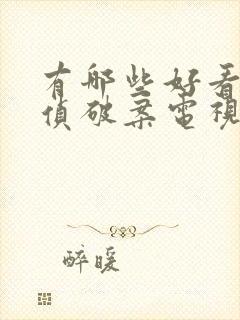 有哪些好看
偵破案電視
醉暖